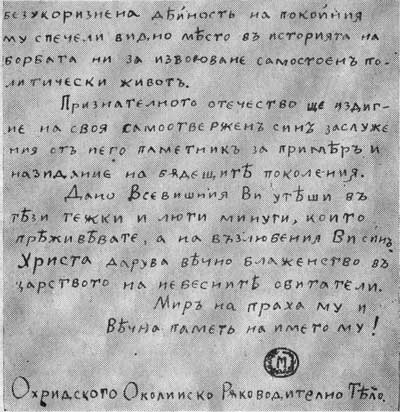 безукоризнена дѣйность на покойния
му спечели видно мѣсто въ историята на
борбата ни за извоюване самостоенъ по-
литически животъ.
Признателното отечество ще издиг-
не на своя самоотверженъ синъ заслуже
ния отъ него паметникъ за примѣръ и
назидание на бѫдещитѣ поколения.
Дано Всевишния Ви утѣши въ
тѣзи тежки и люти минути, които
прѣживѣвате, а на възлюбения Ви синъ
Христа дарува вѣчно блаженство въ
царството на небеснитѣ обитатели.
Миръ на праха му и
Вѣчна паметь на името му!
М
Охридското Околийско Рѫководително Тѣло.